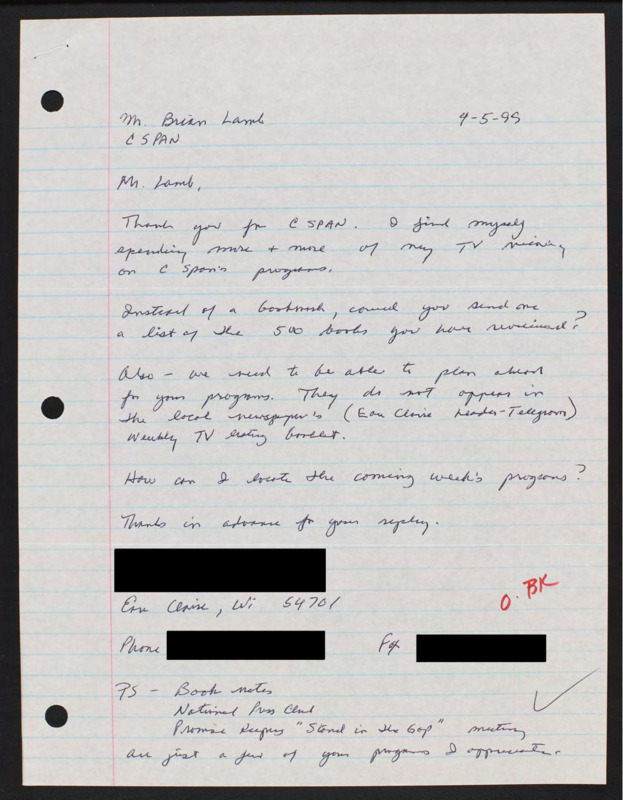 Mr. Brian Lamb 4-5-99
C SPAN
Mr. Lamb,
Thank you for C SPAN. I find myself
spending more + more of my TV viewing
on C Span's programs.
Instead of a bookmark, could you send me
a list of the 500 books you have reviewed?
Also - we need to be able to plan ahead
for your programs. They do not appear in
the local newspaper's (Eau Claire Leader-Telegram)
Weekly TV listing booklet.
How can I locate the coming week's programs?
Thanks in advance for your reply.
Eau Claire, Wi 54701
O. BK
Phone Fax
PS - Book notes
National Press Club
Promise Keepers "Stand in the Gap" meeting
are just a few of your programs I appreciate.